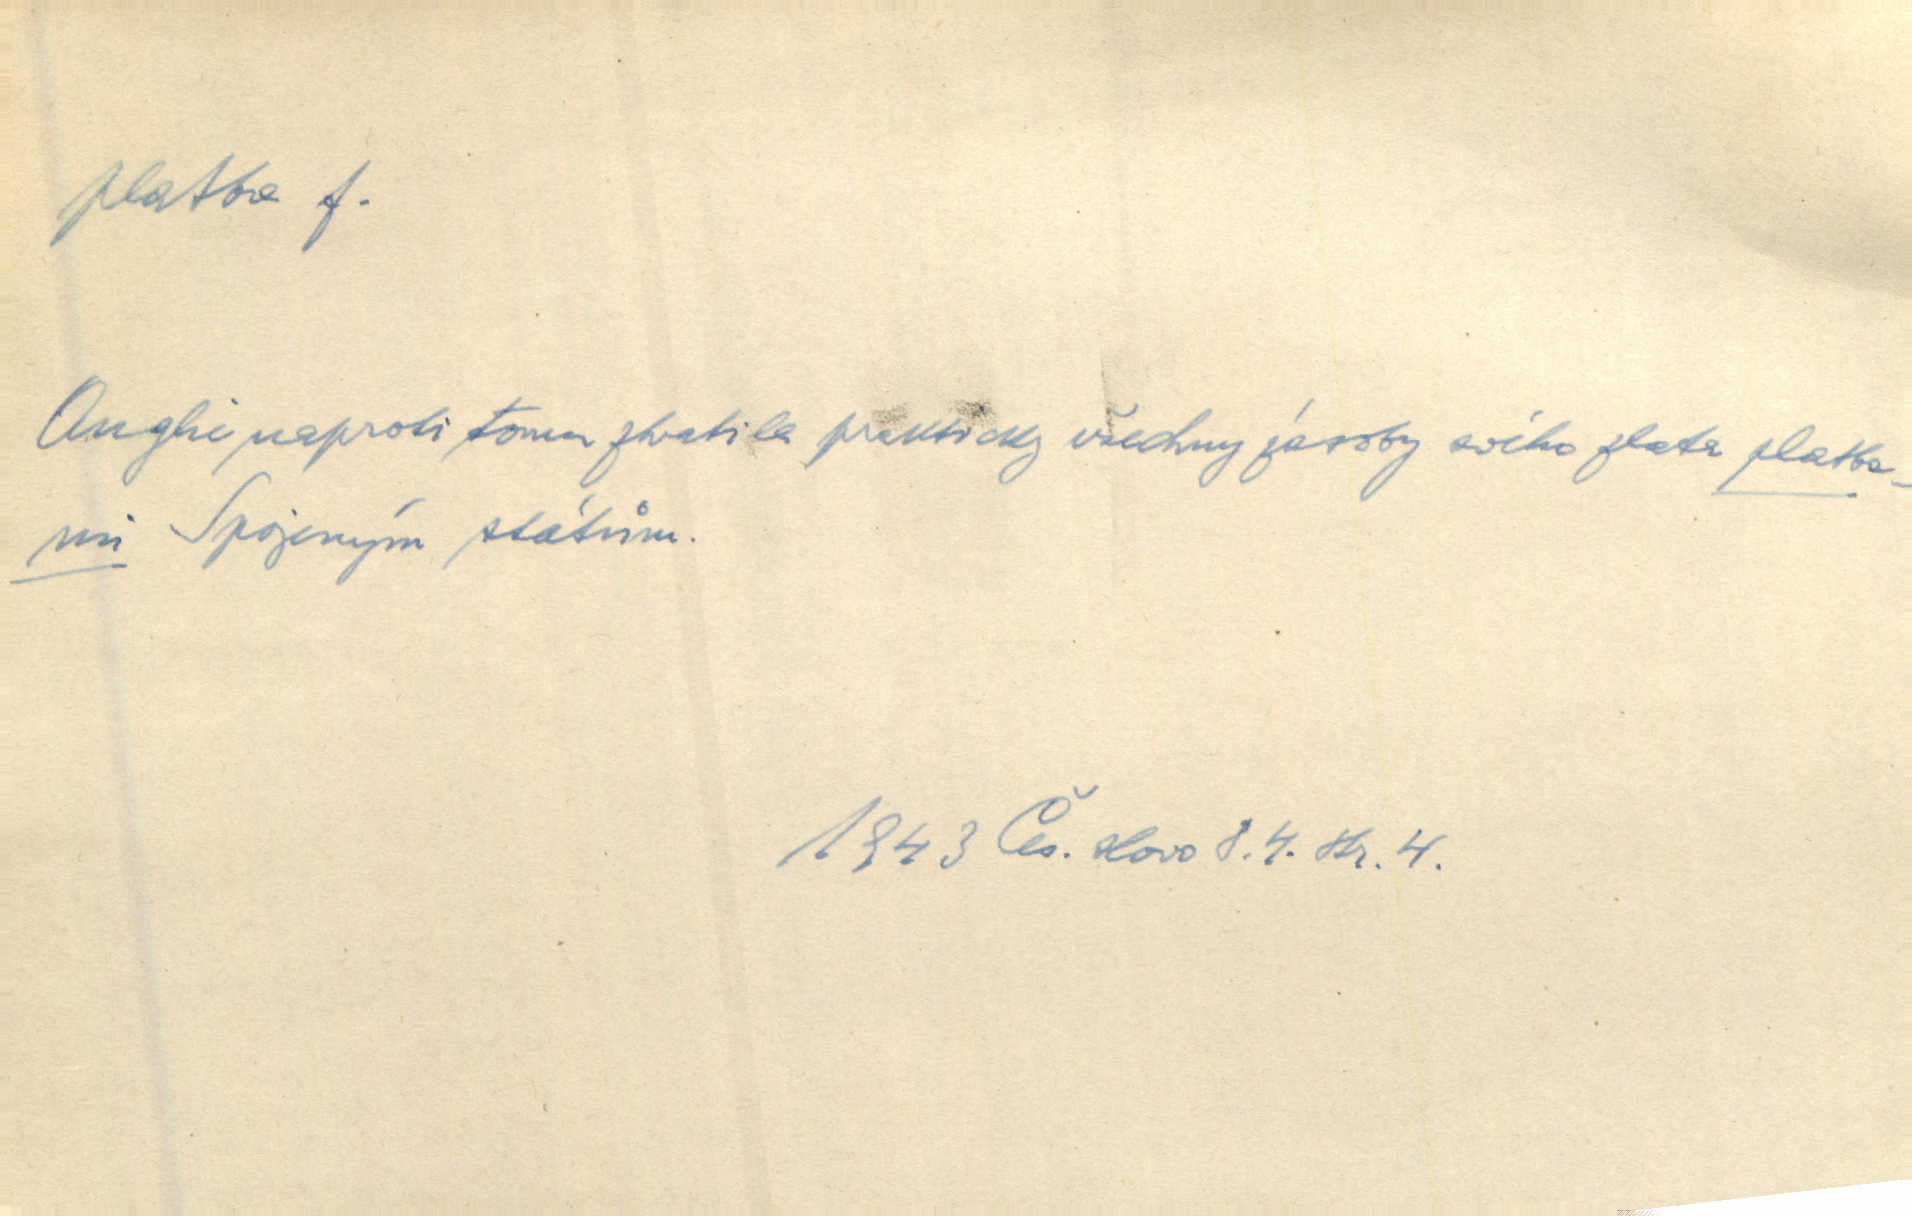 platba f.
Anglie naproti tomu ztratila prakticky všechny zásoby svého zlata platba-
mi Spojeným státům.
1943 Čes. slovo 8.4. str. 4.